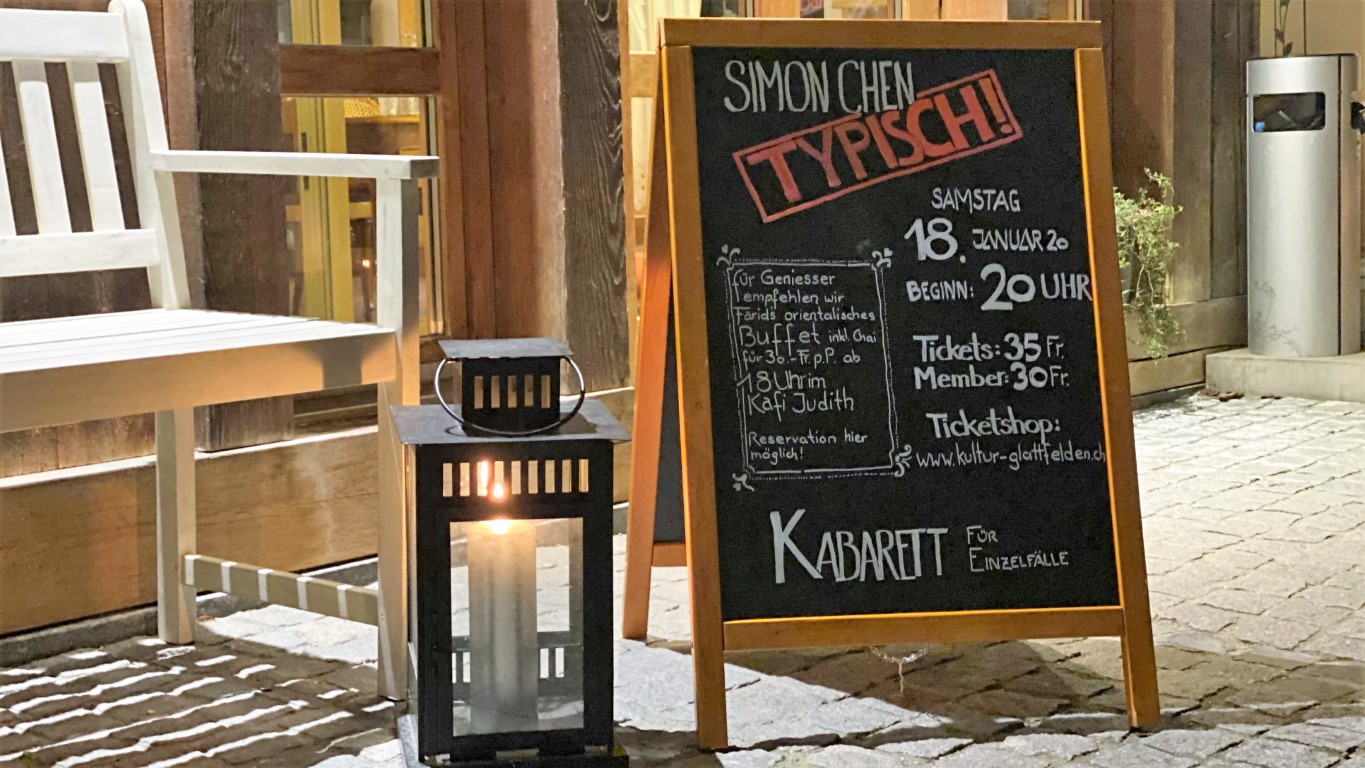 SIMON CHEN
TYPISCH!
SAMSTAG
18. JANUAR 20
BEGINN: 20 UHR
Tickets: 35 Fr.
Member: 30 Fr.
Ticketshop:
www.kultur-glattfelden.ch
für Geniesser
empfehlen wir
Farids orientalisches
Buffet inkl. Chai
für 30.-Fr. p.P. ab
18 Uhr im
Kafi Judith
Reservation hier
möglich!
KABARETT FÜR
EINZELFÄLLE